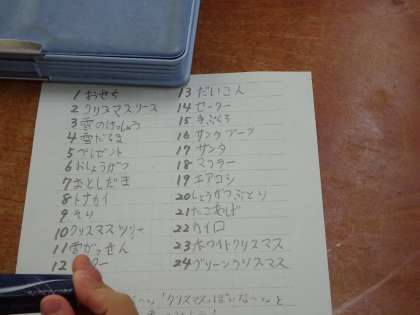 1 おせち
2 クリスマスリース
3 雪のけっしょう
4 雪だるま
5 プレゼント
6 おしょうがつ
7 おとしだま
8 トナカイ
9 そり
10 クリスマスツリー
11 雪がっせん
12
13 だいこん
14 セーター
15 手ぶくろ
16 サンタブーツ
17 サンタ
18 マフラー
19 エアコン
20 しょうがつぶとり
21 たこあげ
22 カイロ
23 ホワイトクリスマス
24 グリーンクリスマス
「クリスマスっぽいな~」と